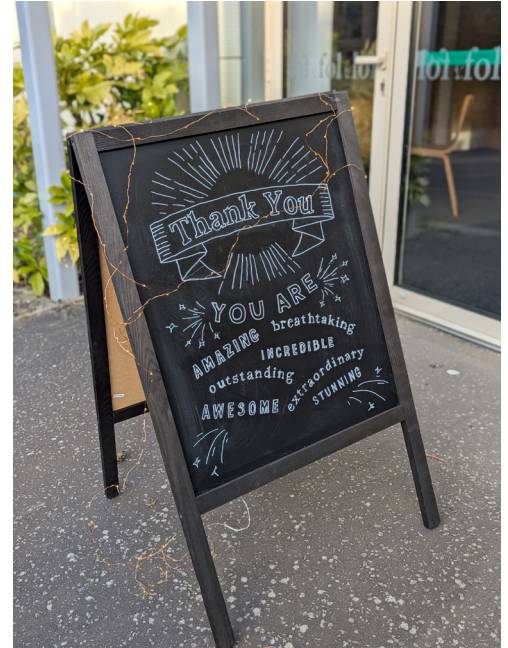 Thank You
YOU ARE
AMAZING breathtaking
INCREDIBLE
outstanding extraordinary
AWESOME STUNNING